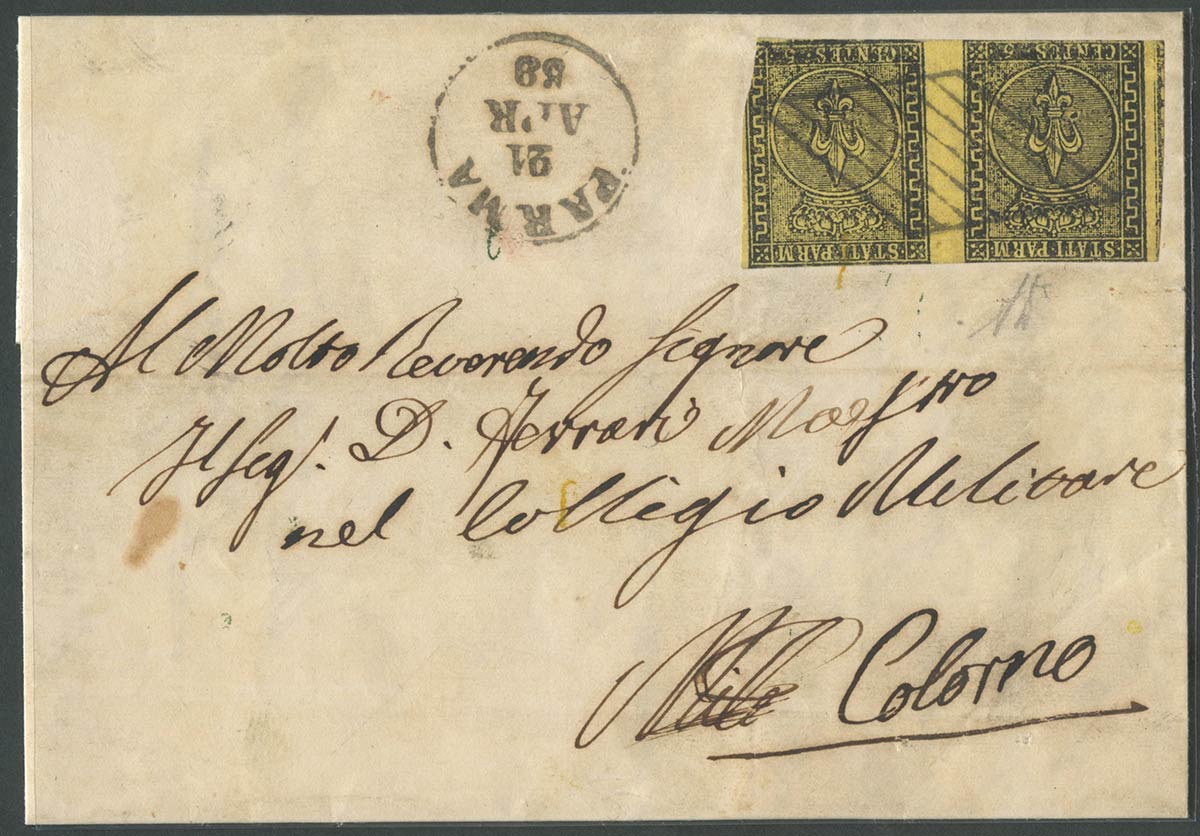 PARMA
21
APR
59
CENTES. 5
STATI PARM.
CENTES. 5
STATI PARM.
Al Molto Reverendo Signore
Il Seg. D. Ferrari Maestro
nel Collegio Melitare
Colorno